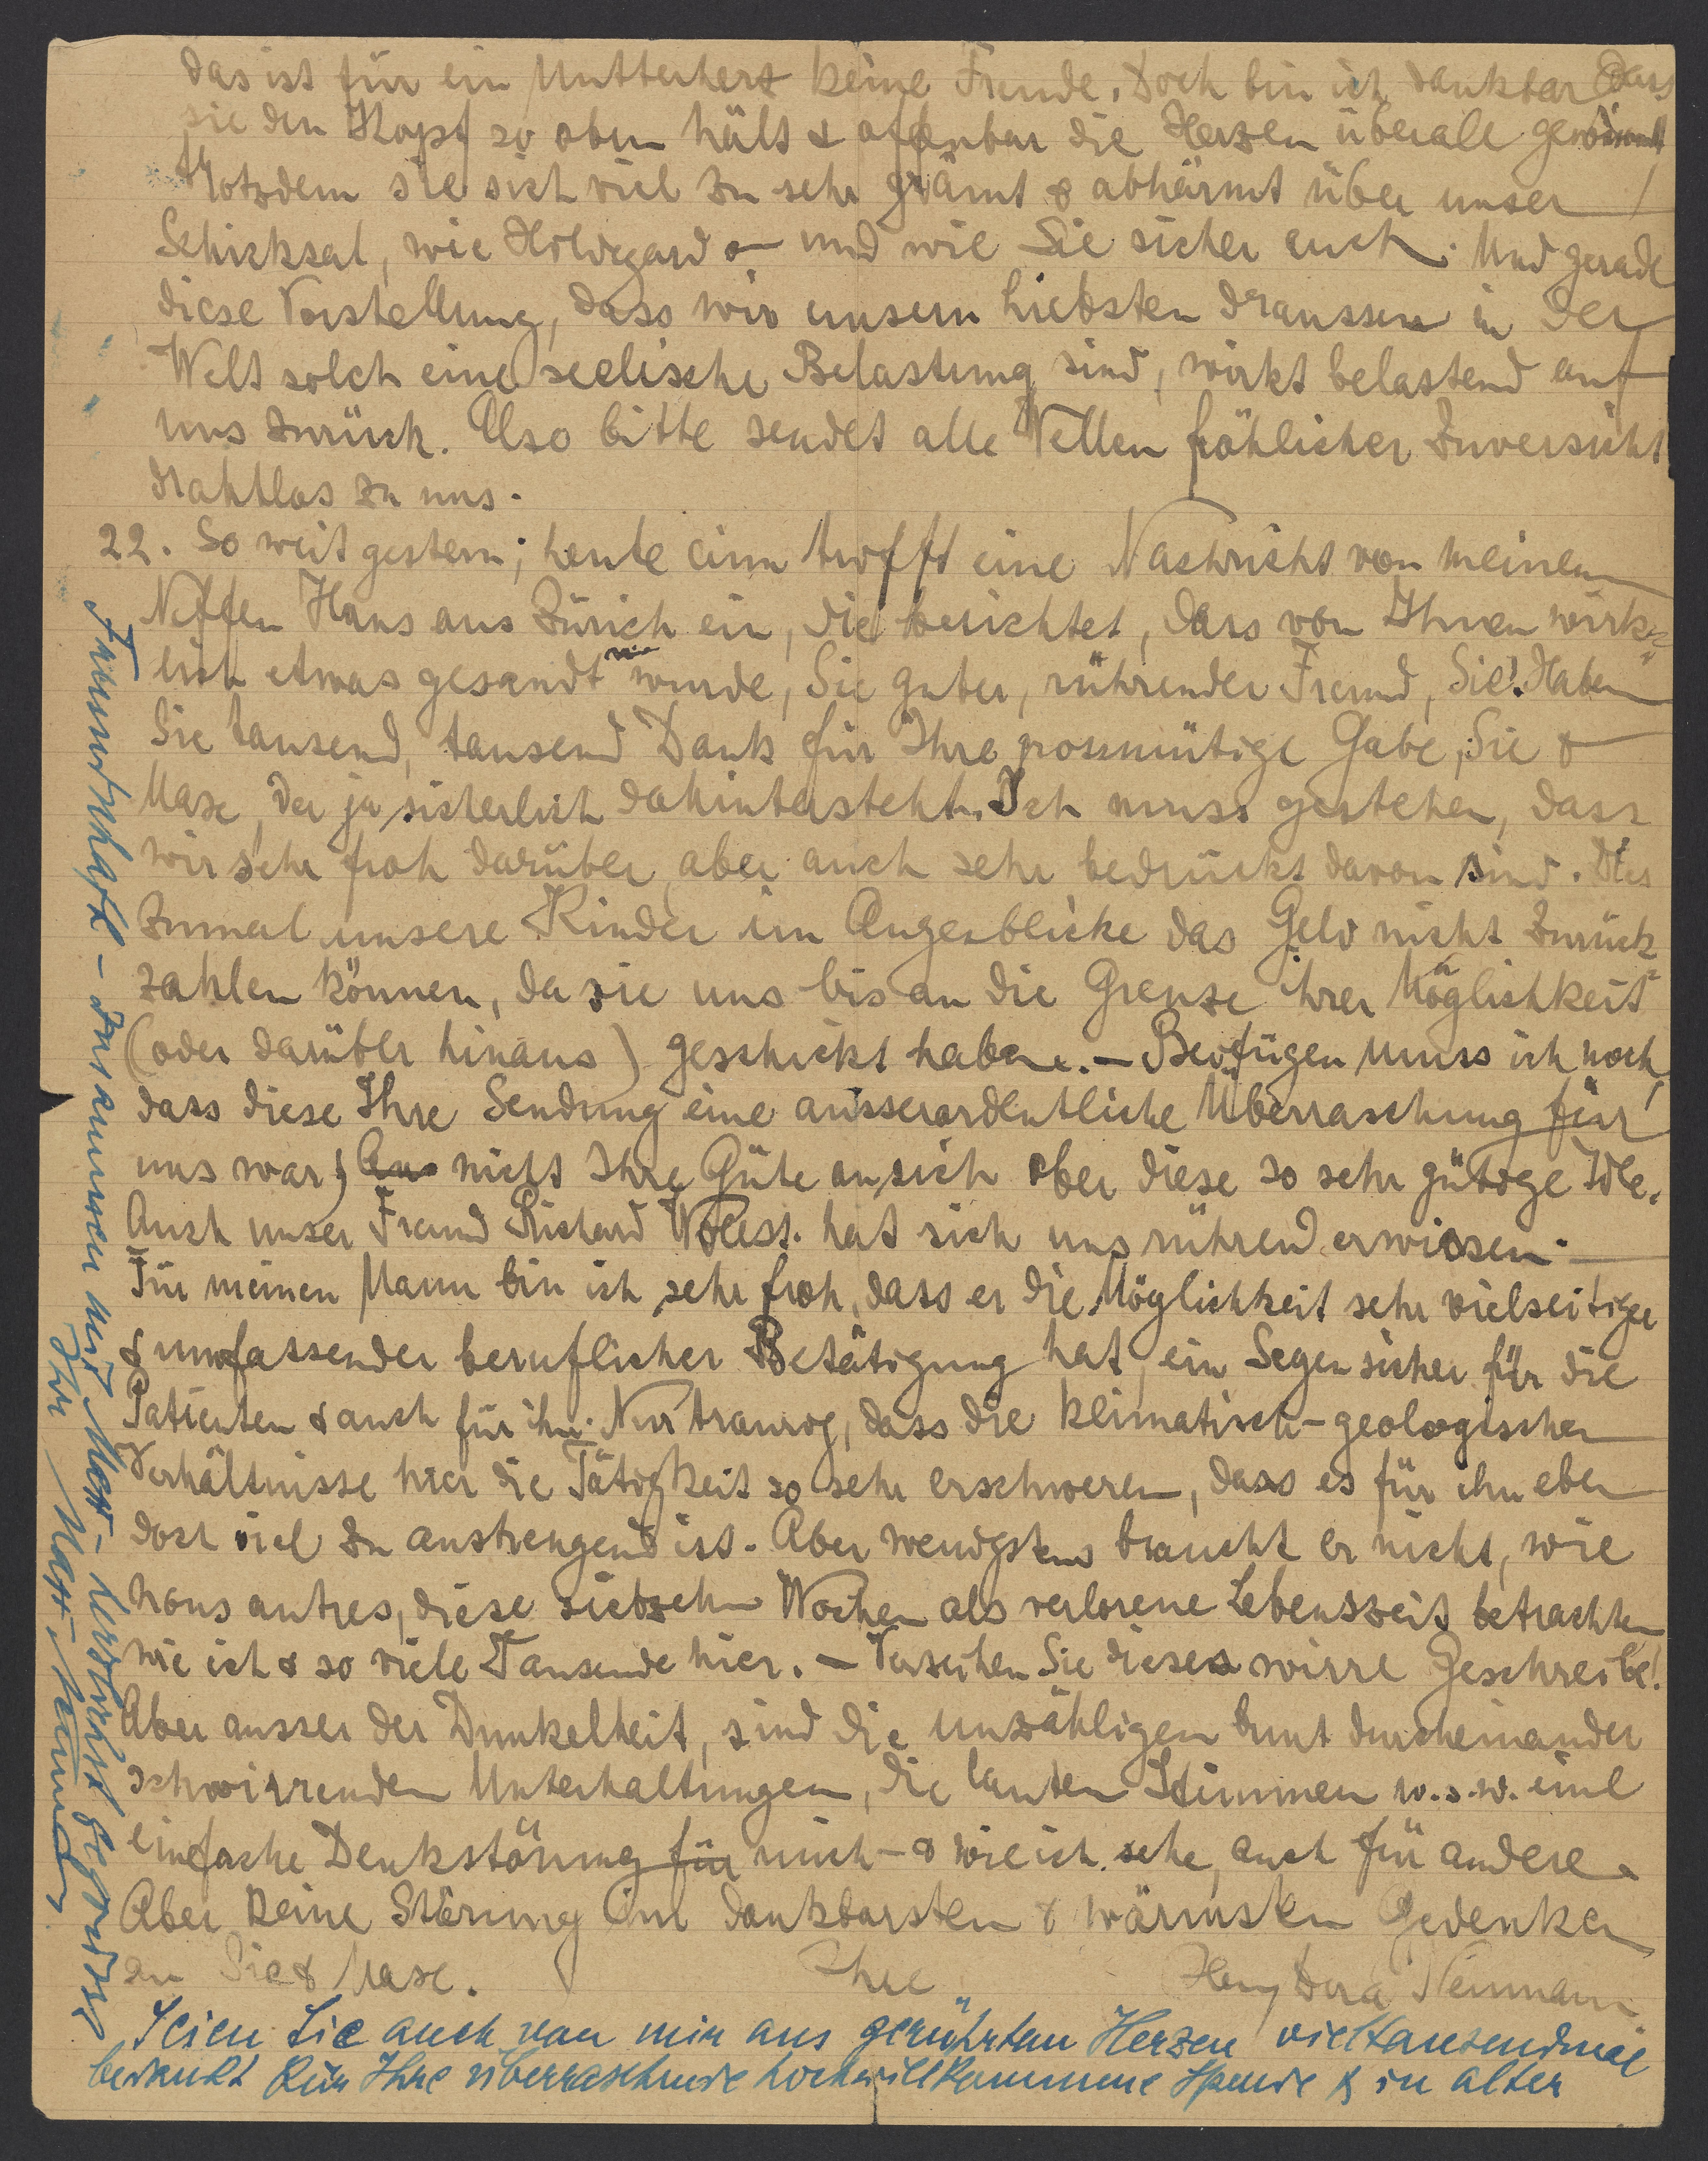 das ist für ein Mutterherz keine Freude. Doch bin ich dankbar dass
sie den Kopf so oben hält & offenbar die Herzen überall gewinnt
trotzdem sie sich viel zu sehr grämt & abhärmt über unser
Schicksal, wie Hildegard – und wie Sie sicher auch. Und gerade
diese Vorstellung, dass wir unsern Liebsten draussen in der
Welt solch eine seelische Belastung sind, wirkt belastend auf
uns zurück. Also bitte sendet alle Wellen fröhlicher Zuversicht
drahtlos zu uns.
22. So weit gestern; heute trifft eine Nachricht von meinem
Neffen Hans aus Zürich ein, die berichtet, dass von Ihnen wirk-
lich etwas gesandt wurde, Sie guter, rührender Freund, Sie! Haben
Sie tausend, tausend Dank für Ihre grossmütige Gabe, Sie &
Maxe, der ja sicherlich dahintersteht. Ich muss gestehen, dass
wir sehr froh darüber, aber auch sehr bedrückt davon sind. Dies
zumal unsere Kinder im Augenblicke das Geld nicht zurück-
zahlen können, da sie uns bis an die Grenze ihrer Möglichkeit
(oder darüber hinaus) geschickt haben. – Beifügen muss ich noch,
dass diese Ihre Sendung eine ausserordentliche Überraschung für
uns war; nicht Ihre Güte an sich aber diese so sehr gütige Idee.
Auch unser Freund Richard Wollst. hat sich uns rührend erwiesen.
Für meinen Mann bin ich sehr froh, dass er die Möglichkeit sehr vielseitiger
& umfassender beruflicher Betätigung hat, ein Segen sicher für die
Patienten & auch für ihn. Nur traurig, dass die klimatisch-geologischen
Verhältnisse hier die Tätigkeit so sehr erschweren, dass es für ihn eben
doch viel zu anstrengend ist. Aber wenigstens braucht er nicht, wie
nous autres, diese siebzehn Wochen als verlorene Lebenszeit betrachten
wie ich & so viele Tausende hier. – Verzeihen Sie dieses wirre Geschreibe!
Aber ausser der Dunkelheit, sind die unzähligen bunt durcheinander
schwirrenden Unterhaltungen, die lauten Stimmen u.s.w. eine
einfache Denkstörung für mich – & wie ich sehe, auch für andere.
Aber keine Störung im dankbarsten & wärmsten Gedenken
an Sie & Maxe. Ihre Dora Neumann
Seien Sie auch von mir aus gerührtem Herzen vieltausendmal
bedankt für Ihre überraschende hochwillkommene Spende & in alter
Freundschaft – zusammen mit Maxe – herzlichst gegrüsst
Ihr Neumann